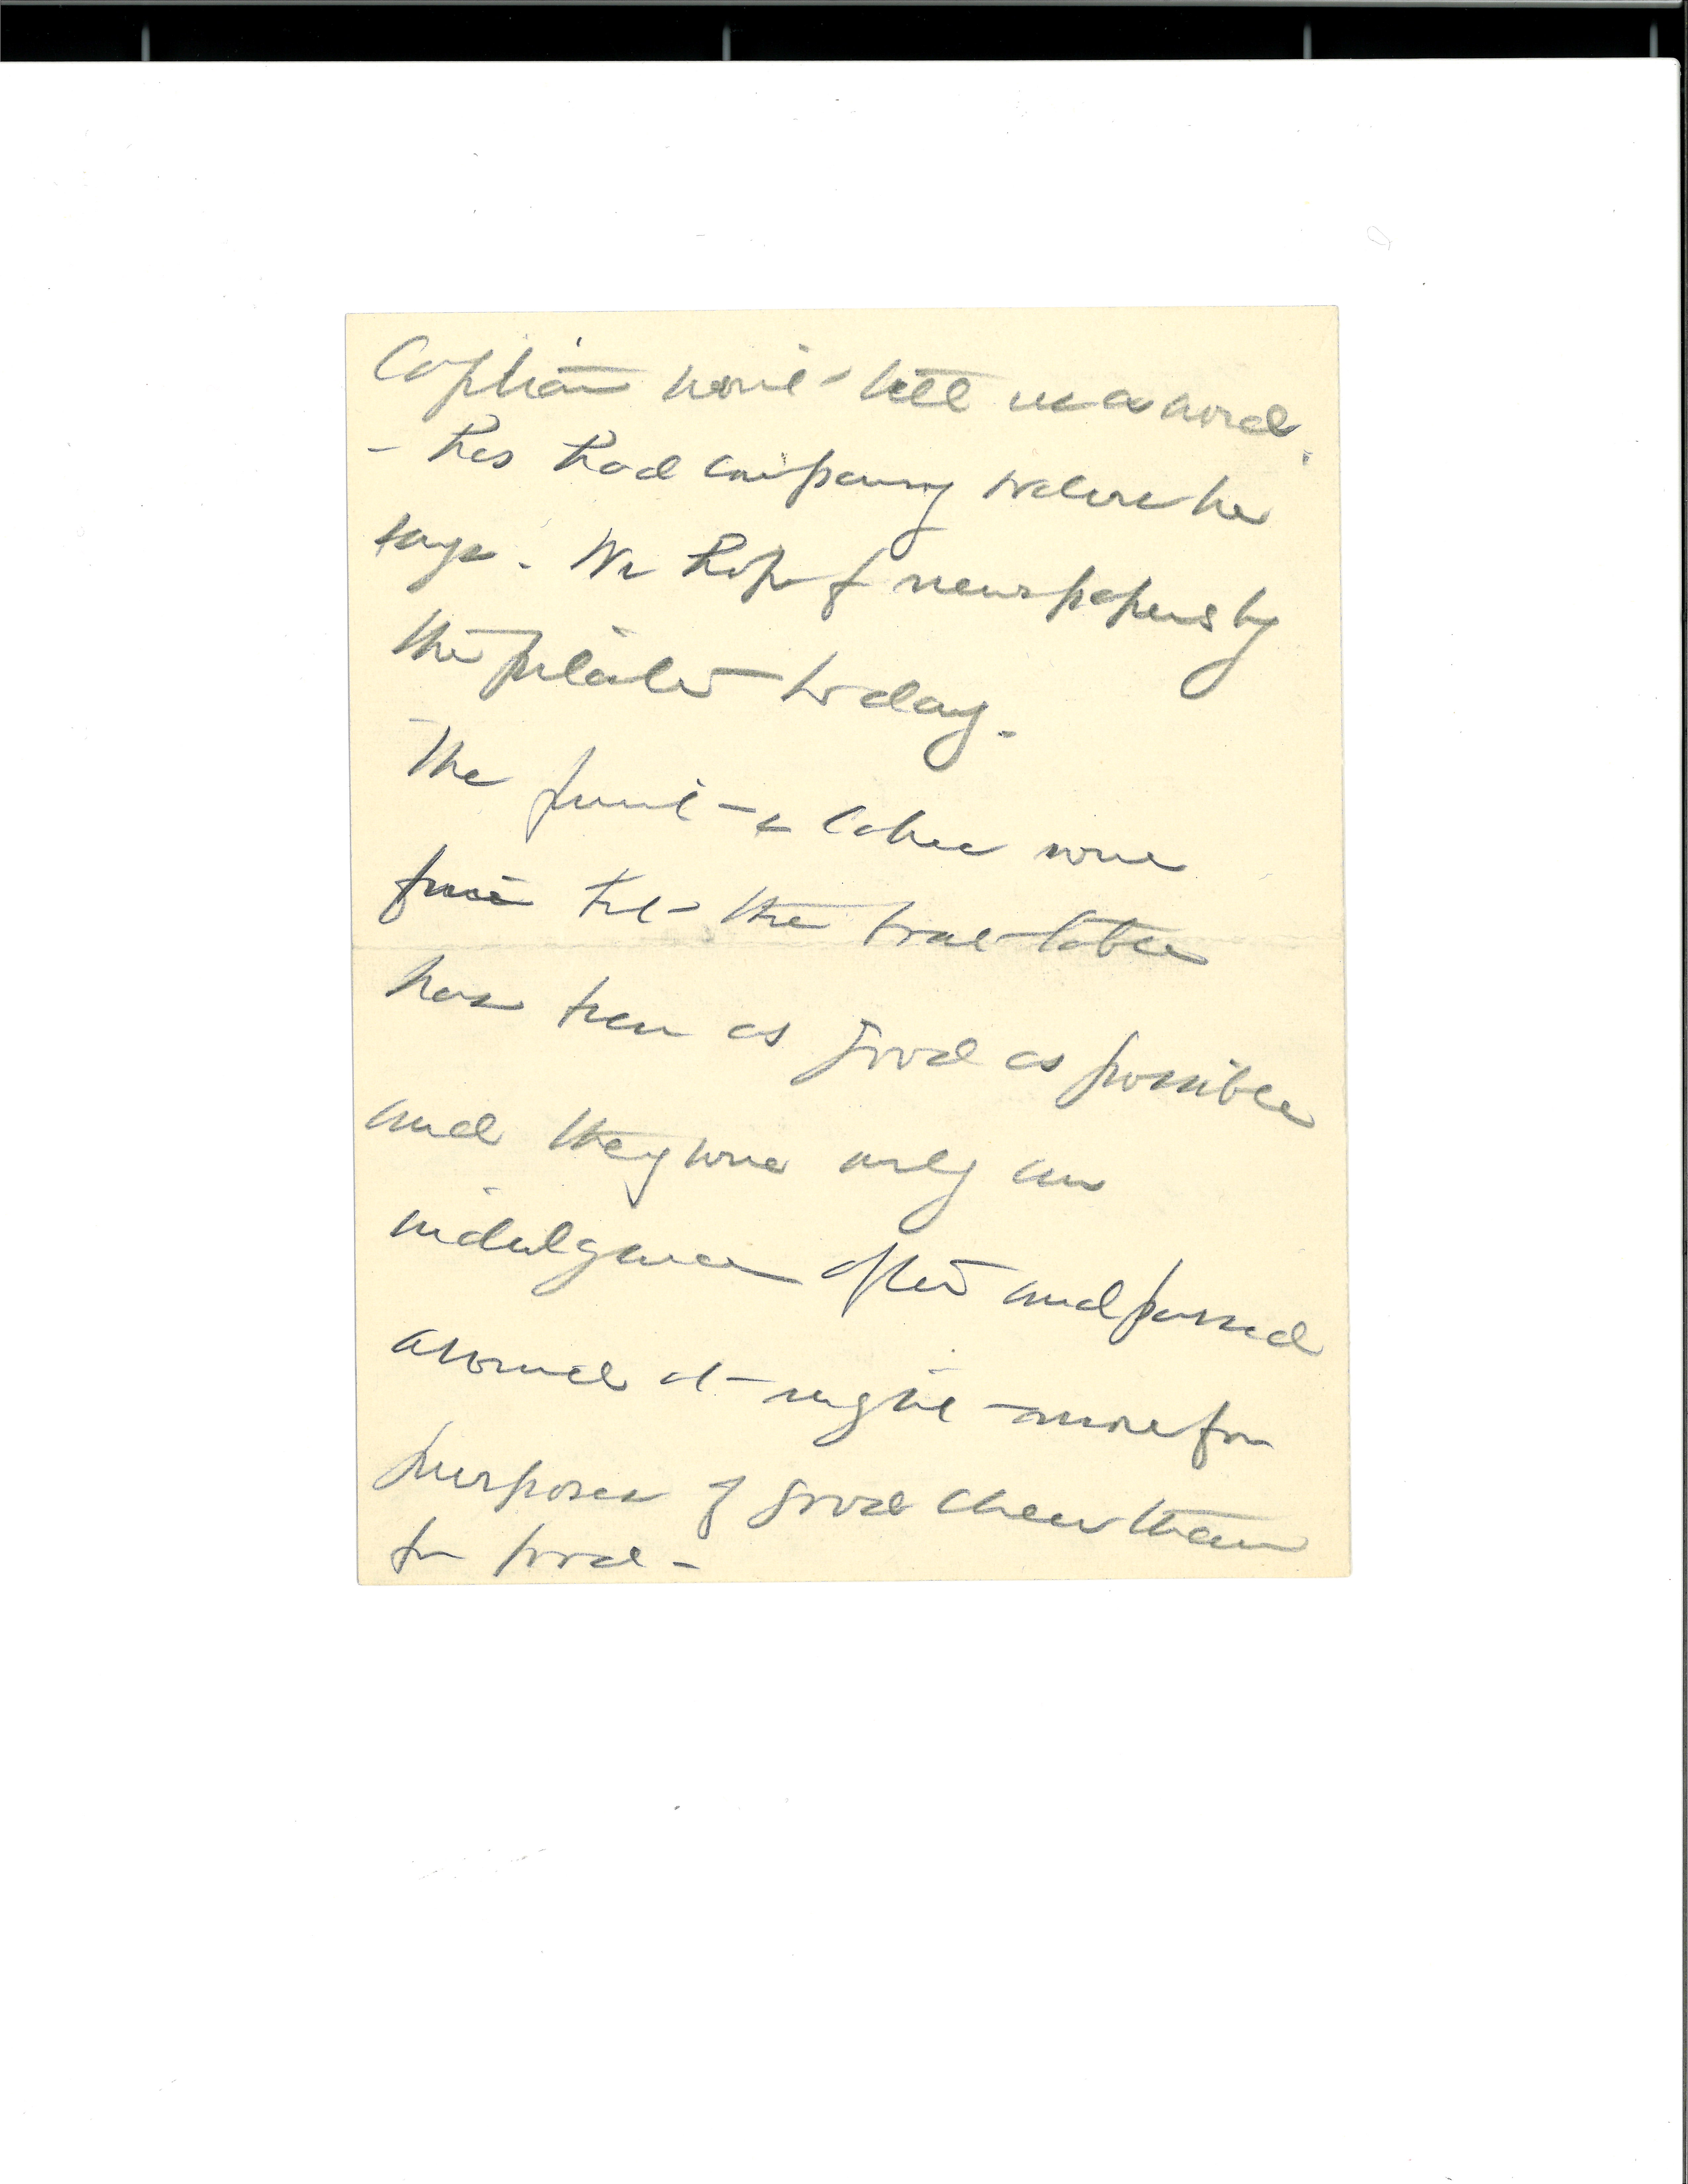 Captain won't tell us a word.
- Has had company orders he
says. We hope for newspapers by
the pilot today.
The fruit & cakes were
fine but the boat table
has been as good as possible
and they were only an
indulgence often and passed
around at night more for
purposes of good cheer than
for food -